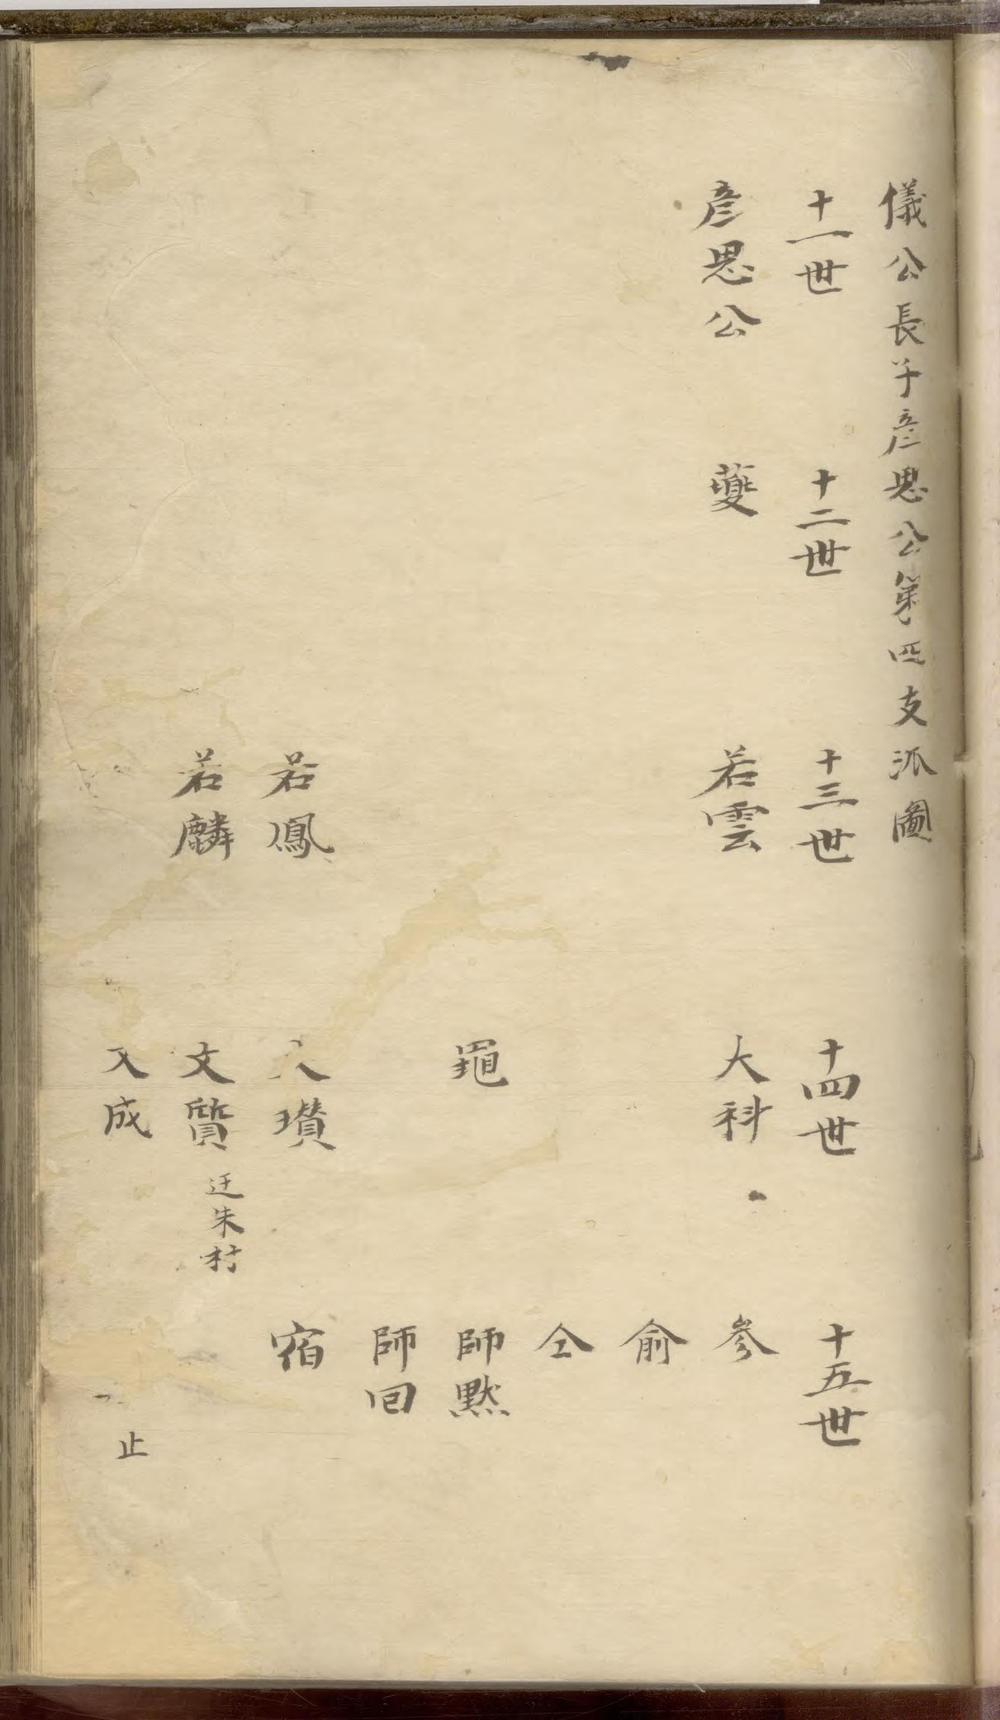 儀公長子彥思公第四支派圖
十一世 十二世 十三世 十四世 十五世
彥思公 夔 若雲 大科 參
俞
仝
師默
師回
若鳳 瓚 宿
若麟 文質 迁朱村
成 止